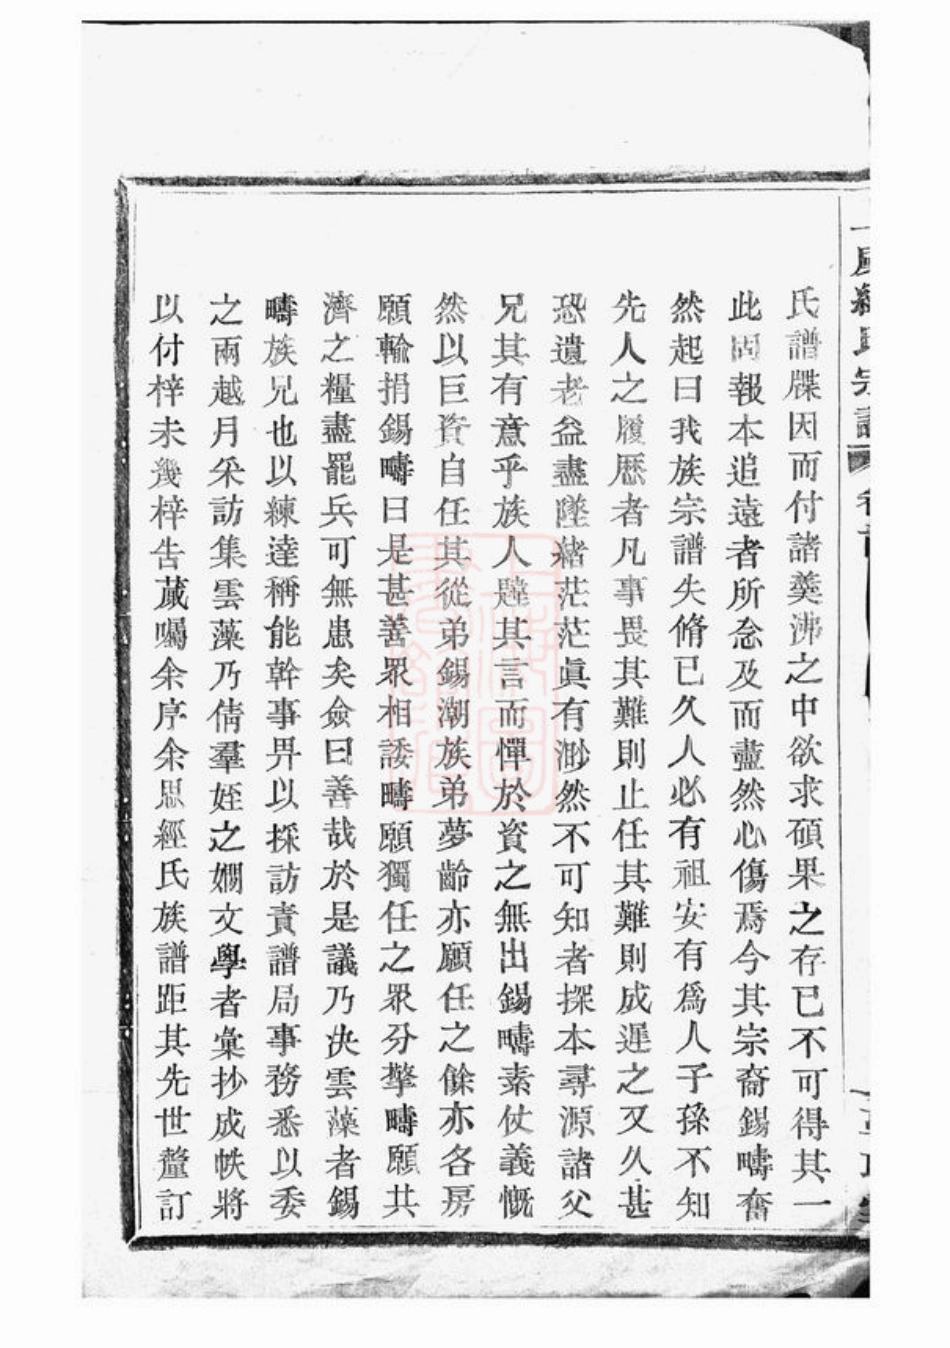 氏譜牒因而付諸羹沸之中欲求碩果之存已不可得其一
此固報本追遠者所念及而衋然心傷焉今其宗裔錫疇奮
然起曰我族宗譜失脩已久人必有祖安有爲人子孫不知
先人之履歷者凡事畏其難則止任其難則成遲之又久甚
恐遺老益盡墜緒茫茫眞有渺然不可知者探本尋源諸父
兄其有意乎族人韙其言而憚於資之無出錫疇素仗義慨
然以巨資自任其從弟錫潮族弟夢齡亦願任之餘亦各房
願輸捐錫疇曰是甚善眾相諉疇願獨任之眾分擎疇願共
濟之糧盡罷兵可無患矣僉曰善哉於是議乃決雲藻者錫
疇族兄也以練達稱能幹事畀以採訪責譜局事務悉以委
之兩越月采訪集雲藻乃倩羣姪之嫻文學者彙抄成帙將
以付梓未幾梓吿蕆囑余序余思經氏族譜距其先世釐訂
氏宗譜